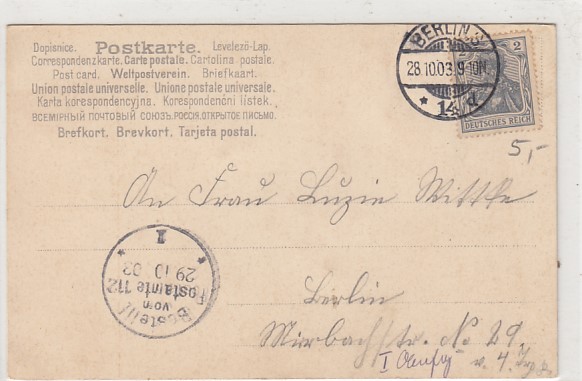 Dopisnice. Postkarte. Levelező-Lap.
Correspondenzkarte. Carte postale. Cartolina postale.
Post card. Weltpostverein. Briefkaart.
Union postale universelle. Unione postale universale.
Karta korespondencyjna. Korespondenčni listek.
ВСЕМІРНЫЙ ПОЧТОВЫЙ СОЮЗЪ. РОССІЯ. ОТКРЫТОЕ ПИСЬМО.
Brefkort. Brevkort. Tarjeta postal.
BERLIN
28.10.03.9-10N.
* 14 d *
2
DEUTSCHES REICH
5,-
An Frau Luzie Wittke
Bestellt
vom
Postamte 112
29 10 03
1
Berlin
Mirbachstr. No 29.
I v. 4.